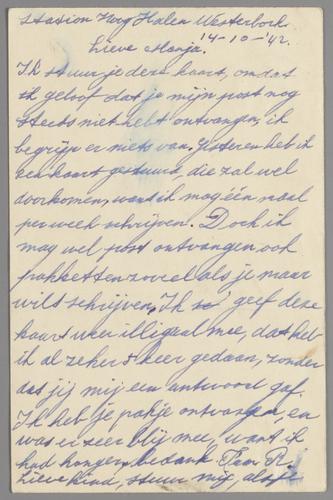 Station Hoog Halen Westerbork
14-10-'42.
Lieve Manja.
Ik stuur je deze kaart, omdat
ik geloof dat je mijn post nog
steets niet hebt ontvangen, ik
begrijp er niets van. Gisteren heb ik
een kaart gestuurd, die zal wel
doorkomen, want ik mag één maal
per week schrijven. Doch ik
mag wel post ontvangen ook
pakketten zoveel als je maar
wilt schrijven, Ik geef deze
kaart weer illigaal mee, dat heb
ik al zeker keer gedaan, zonder
dat jij mij een antwoord gaf.
Ik heb je pakje ontvangen, en
was er zeer blij mee, want ik
had honger, bedankt R.
Lieve kind, stuur mij, als